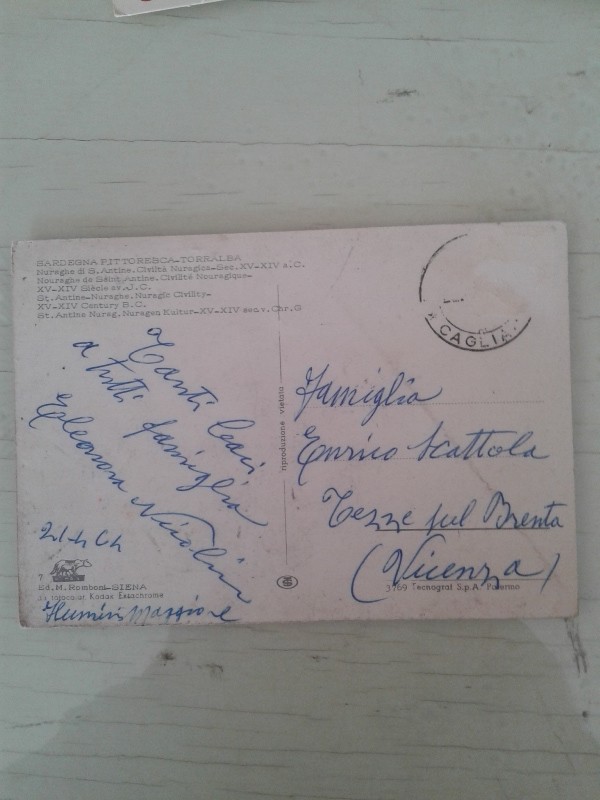 SARDEGNA PITTORESCA-TORRALBA
Nuraghe di S. Antine. Civiltà Nuragica-Sec. XV-XIV a. C.
Nouraghe de Saint Antine. Civilité Nouragique-
XV-XIV Siècle av. J. C.
St. Antine-Nuraghe. Nuragic Civility-
XV-XIV Century B. C.
St. Antine Nurag. Nuragen Kultur-XV-XIV sec. v. Chr. G
CAGLIA
Tanti baci
a tutti famiglia
Eleonora
riproduzione vietata
Famiglia
Enrico Scattola
Tezze sul Brenta
(Vicenza)
7
Ed. M. Romboni-SIENA
da fotocolor Kodak Ektachrome
3769 Tecnograf S.p.A. Palermo